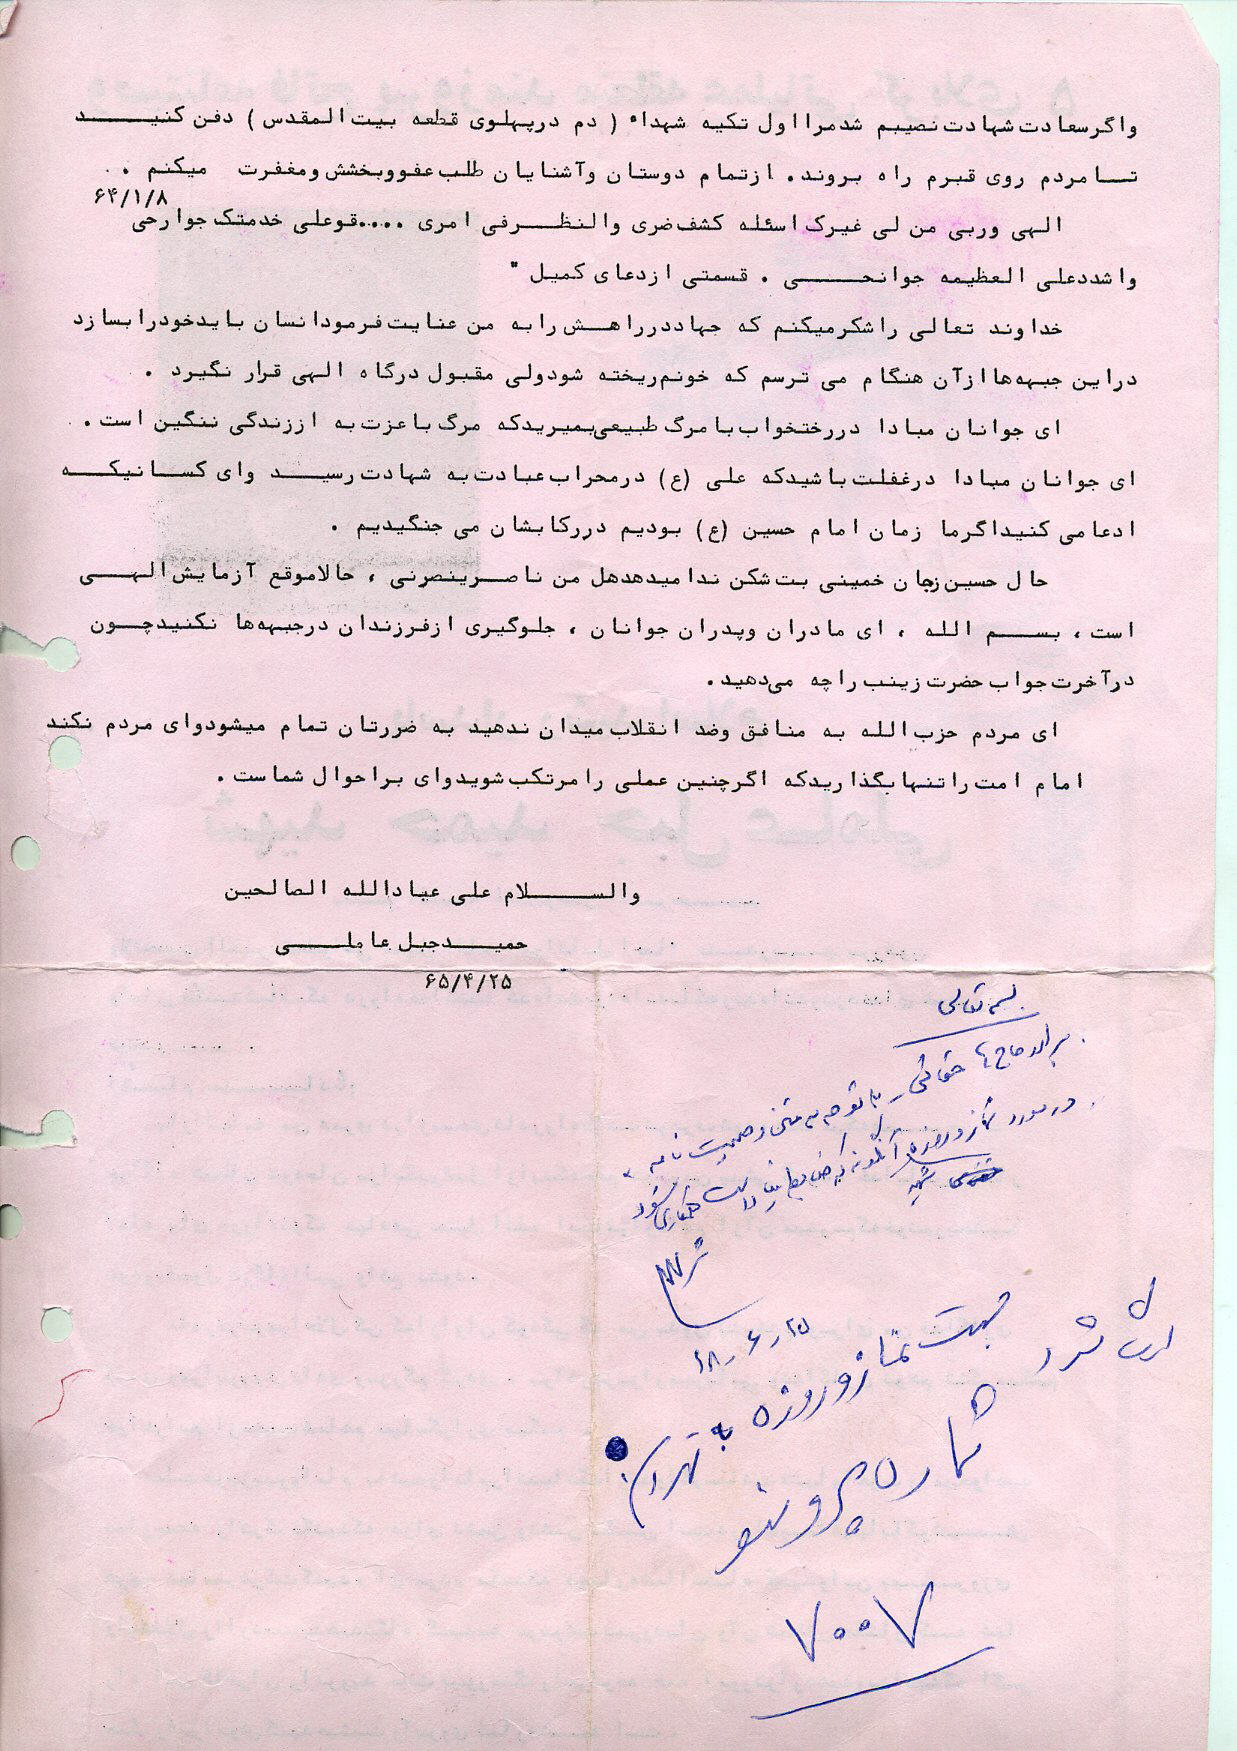 واگرسعادت شهادت نصیبم شدمرا اول تکیه شهداء ( دم درپهلوی قطعه بیت المقدس ) دفن کنید
تا مردم روی قبرم راه بروند. ازتمام دوستان وآشنایان طلب عفووبخشش ومغفرت میکنم .
۶۴/۱/۸
الهی وربی من لی غیرک اسئله کشف ضری والنظرفی امری ....قوعلی خدمتک جوارحی
واشددعلی العظیمه جوانحی . قسمتی ازدعای کمیل "
خداوند تعالی راشکرمیکنم که جهاددرراهش رابه من عنایت فرمودانسان بایدخودرابسازد
دراین جبهه‌ها ازآن هنگام می ترسم که خونم ریخته شودولی مقبول درگاه الهی قرار نگیرد .
ای جوانان مبادا دررختخواب بامرگ طبیعی بمیریدکه مرگ باعزت به اززندگی ننگین است .
ای جوانان مبادا درغفلت باشیدکه علی (ع) درمحراب عبادت به شهادت رسید وای کسانیکه
ادعامی کنیداگرما زمان امام حسین (ع) بودیم دررکابشان می جنگیدیم .
حال حسین زجان خمینی بت شکن ندامیدهدهل من ناصرینصرنی ، حالاموقع آزمایش الهی
است ، بسم الله ، ای مادران وپدران جوانان ، جلوگیری ازفرزندان درجبهه‌ها نکنیدچون
درآخرت جواب حضرت زینب راچه می‌دهید .
ای مردم حزب الله به منافق وضد انقلاب میدان ندهید به ضررتان تمام میشودوای مردم نکند
امام امت راتنهابگذاریدکه اگرچنین عملی رامرتکب شویدوای براحوال شماست .
والسلام علی عبادالله الصالحین
حمیدجبل عاملی
۶۵/۴/۲۵
بسمه تعالی
برادر حاج آقا حقانی با توجه به متن وصیت نامه
در مورد نماز و روزه شهید
جهت نماز و روزه به تهران
شماره پرونده
۷۰۰۷